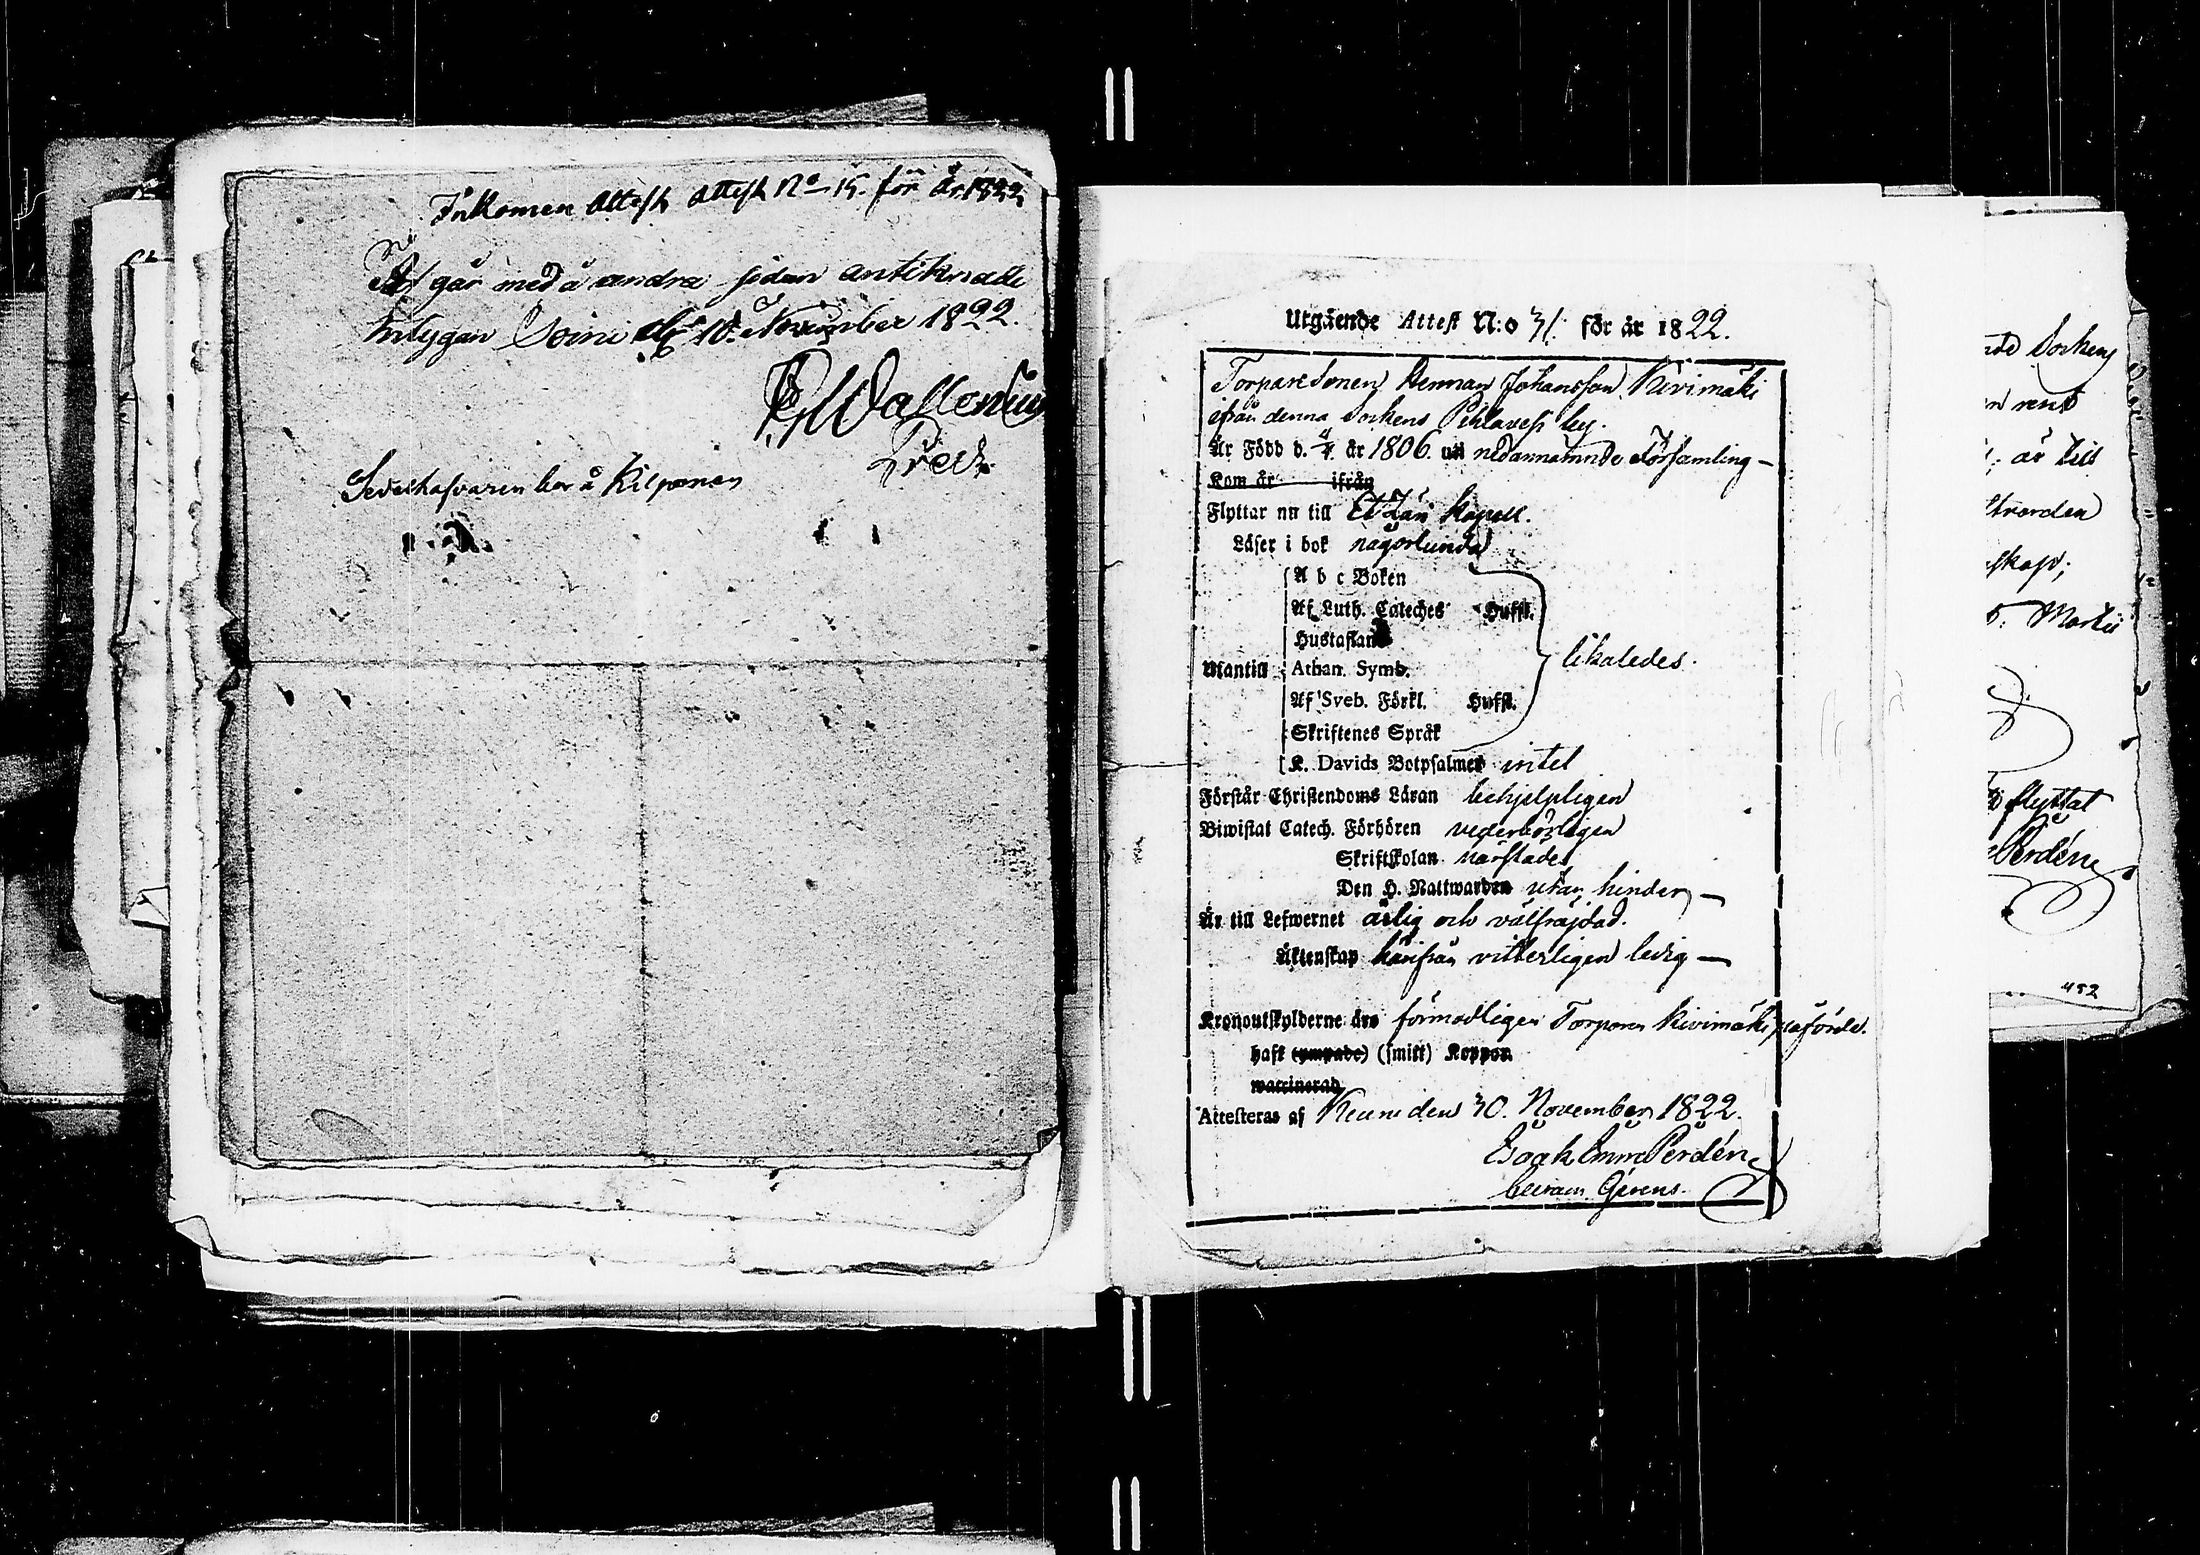 Inkomen Attest attest No 15. för år 1822
Afgår med å andra sidan anteknade
Intygan Soini d. 10. November 1822.
Wallenius
Pred.
Sedelhafvaren bor å Kilponen
Utgående Attest N:o 31. för år 1822.
Torparesonen Herman Johansson Kivimäki
ifrån denna Sockens Pihlavesi by.
Är Född d. år 1806. uti nedannämnde Församling —
Kom år ifrån
Flyttar nu till Etzäri Kapell.
Läser i bok någorlunda
A b c Boken
Af Luth. Cateches Hufst.
Hustaflan
Utantill Athan. Symb.
Af Sveb. Förkl. Hufst.
Skriftenes Språk
likaledes.
K. Davids Botpsalmer intet
Förstår Christendoms Läran behjelpligen
Biwistat Catech. Förhören vederbörligen
Skriftskolan
Den H. Nattwarden utan hinder —
Är till Lefwernet ärlig och välfräjdad.
Äktenskap härifrån vitterligen ledig —
Kronoutskylderne äro förmodligen Torparen Kivimäki påförde.
haft (ympade) (smitt) Koppor
waccinerad
Attesteras af Keuru den 30. November 1822.
Isaak Em: Perdén
nde Sockens
n rent
är till
skap;
Martii
flyttat
Perdén
452